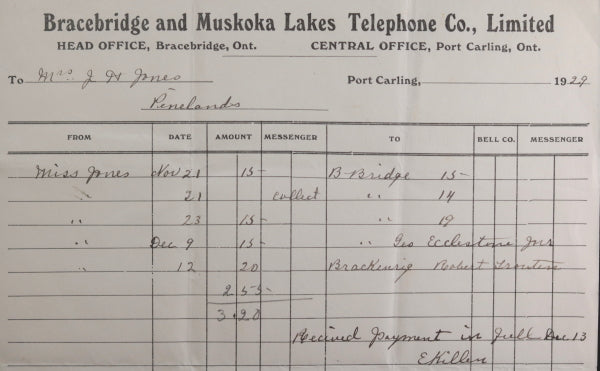 Bracebridge and Muskoka Lakes Telephone Co., Limited
HEAD OFFICE, Bracebridge, Ont. CENTRAL OFFICE, Port Carling, Ont.
To Mrs. J H Jones Port Carling, 1929
Pinelands
FROM DATE AMOUNT MESSENGER TO BELL CO. MESSENGER
Miss Jones Nov 21 15- B-Bridge 15-
" 21 collect " 14
" 23 15- " 19
" Dec 9 15- " Geo Ecclestone Jnr
" 12 20 Robert
2 55-
3.20
Recived Payment in full Dec 13
E Killen